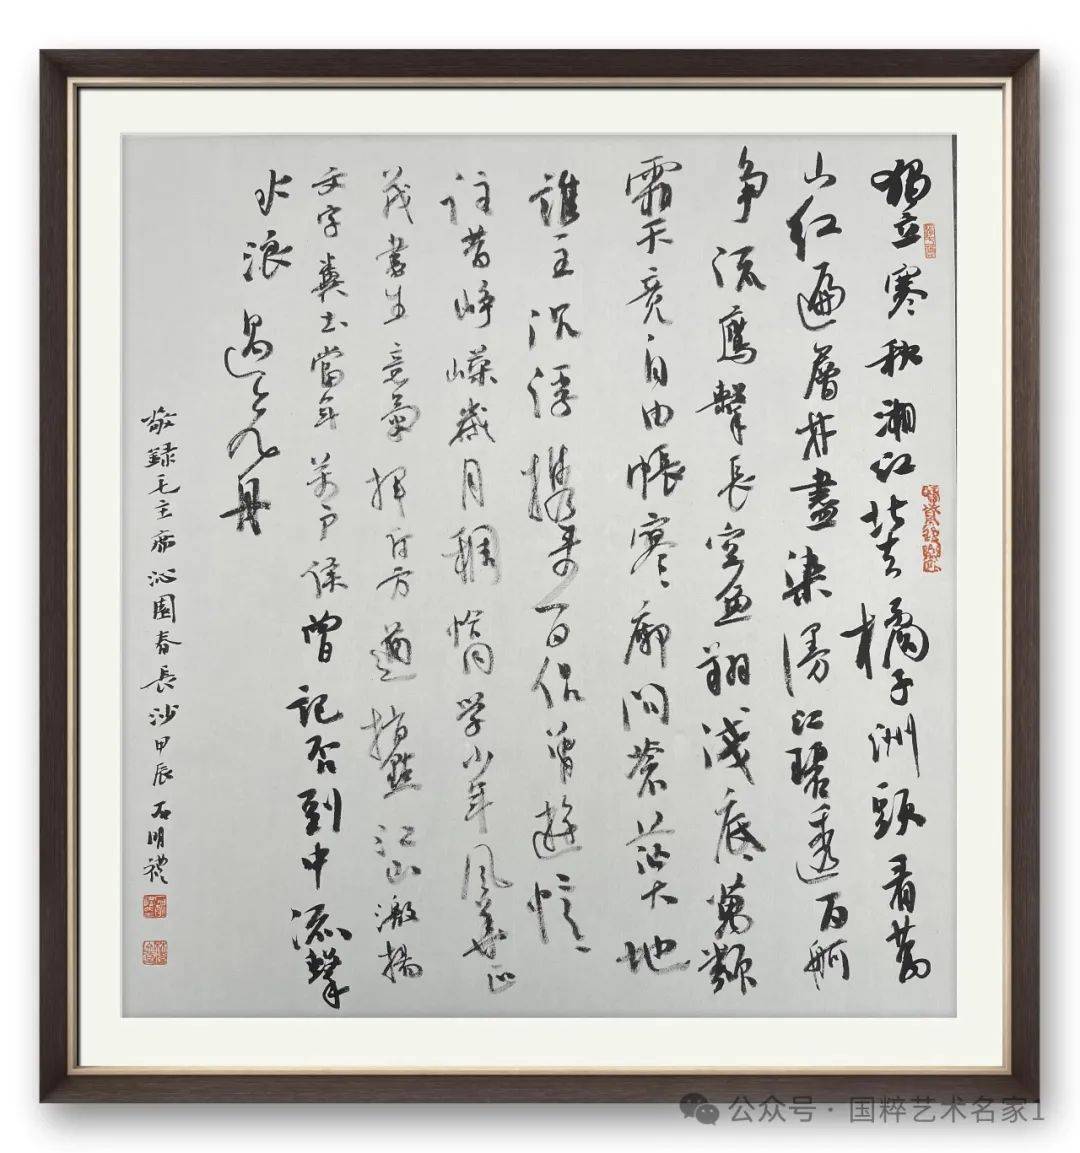 獨立寒秋湘江北去橘子洲頭看萬
山紅遍層林盡染漫江碧透百舸
争流鷹擊長空魚翔淺底萬類
霜天竞自由悵寥廓問蒼茫大地
誰主沉浮攜來百侣曾遊憶
往昔峥嶸歲月稠恰同学少年風華正
茂書生意氣揮斥方遒指點江山激揚
文字糞土當年萬户侯曾記否到中流擊
水浪遏飞舟
敬録毛主席沁園春長沙甲辰石明禮
公众号·国粹艺术名家1